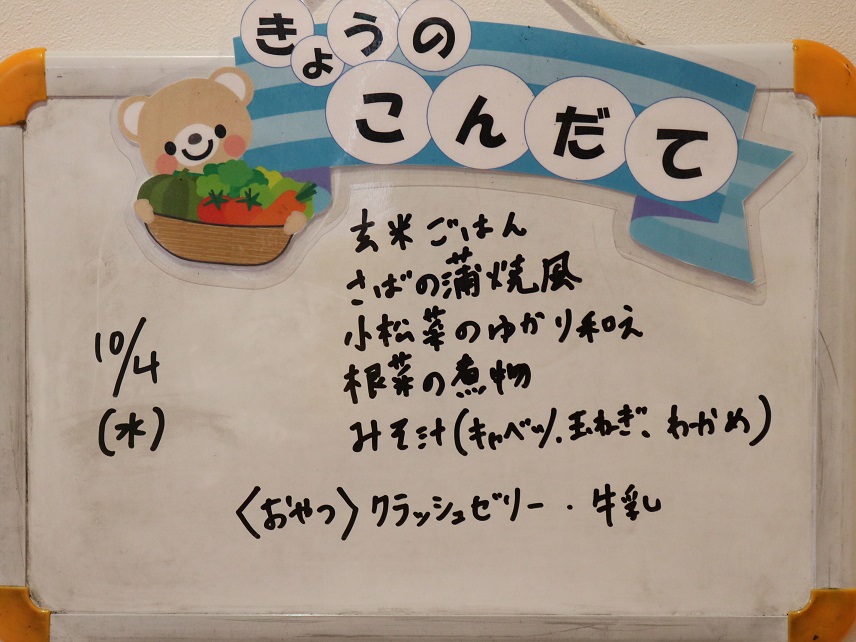 きょうの
こんだて
玄米ごはん
さばの蒲焼風
小松菜のゆかり和え
根菜の煮物
10/4
(水)
みそ汁(キャベツ、玉ねぎ、わかめ)
〈おやつ〉クラッシュゼリー・牛乳